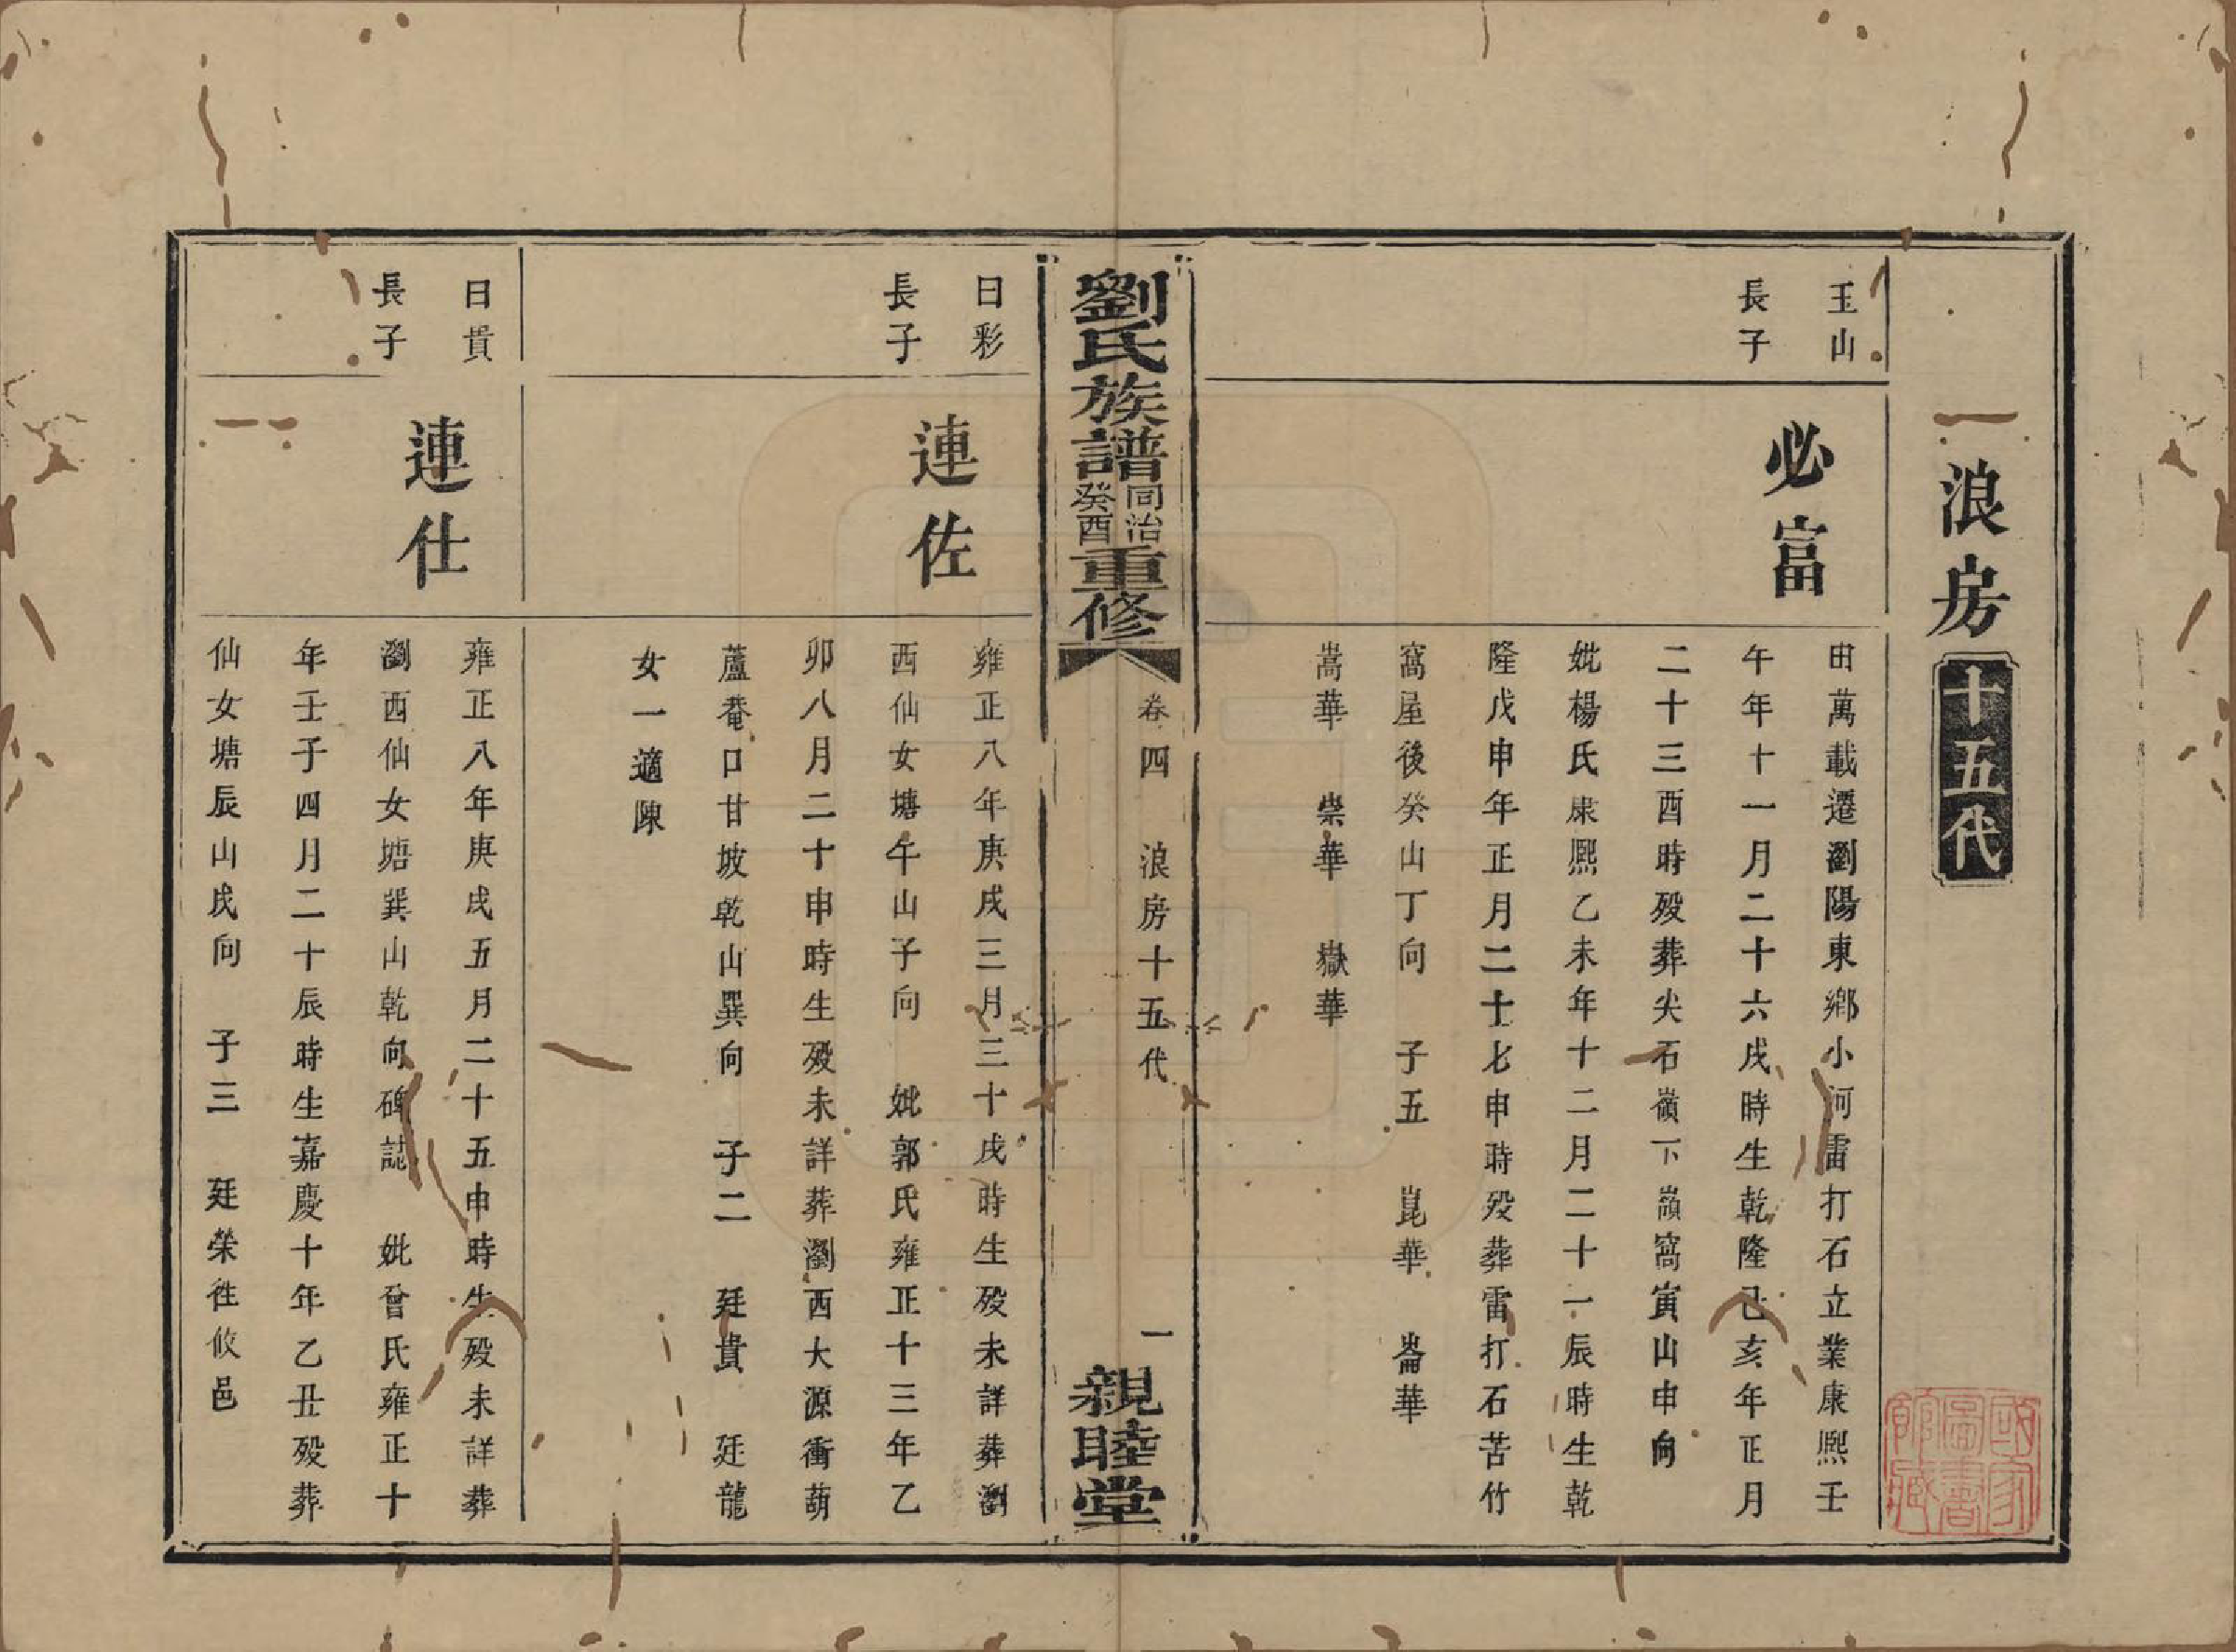 浪房十五代
玉山
長子
必富
田萬載遷瀏陽東鄉小河雷打石立業康熙壬
午年十一月二十六戌時生乾隆己亥年正月
二十三酉時歿葬尖石嶺下嶺窩寅山申向
妣楊氏康熙乙未年十二月二十一辰時生乾
隆戊申年正月二十七申時歿葬雷打石苦竹
窩屋後癸山丁向 子五 崑華 崙華
嵩華 崇華 嶽華
劉氏族譜同治癸酉重修 卷四 浪房十五代 一 親睦堂
日彩
長子
連佐
雍正八年庚戌三月三十戌時生歿未詳葬瀏
西仙女塘午山子向 妣郭氏雍正十三年乙
卯八月二十申時生歿未詳葬瀏西大源衝葫
蘆菴口甘坡乾山巽向 子二 廷貴 廷龍
女一適陳
日貴
長子
連仕
雍正八年庚戌五月二十五申時生歿未詳葬
瀏西仙女塘巽山乾向碑誌 妣曾氏雍正十
年壬子四月二十辰時生嘉慶十年乙丑歿葬
仙女塘辰山戌向 子三 廷榮徃攸邑
國家圖書館藏